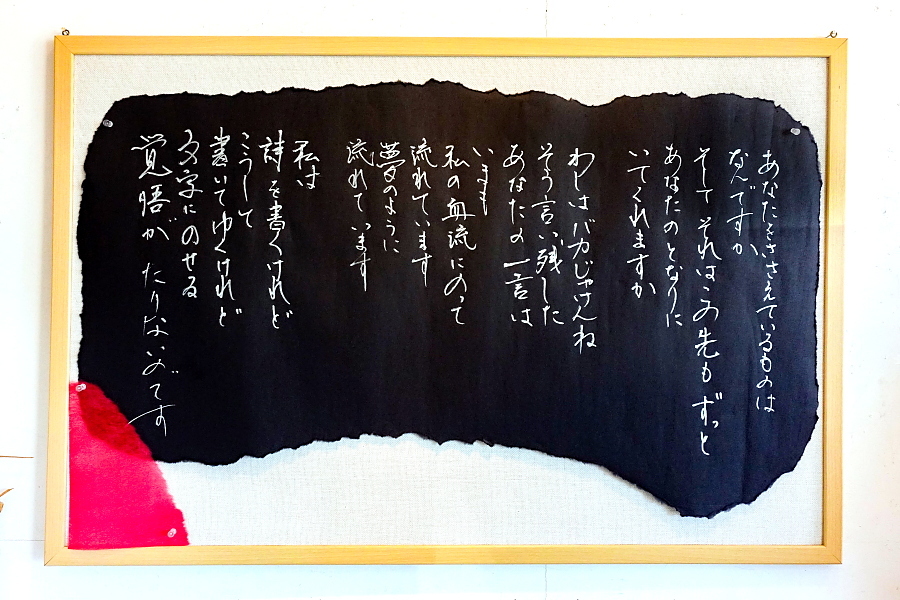 あなたをささえているものは
なんですか
そして それはこの先もずっと
あなたのとなりに
いてくれますか
わしはバカじゃけんね
そう言い残した
あなたの一言は
いまも
私の血流にのって
流れています
夢のように
流れています
私は
詩を書くけれど
こうして
書いてゆくけれど
文字にのせる
覚悟が たりないのです